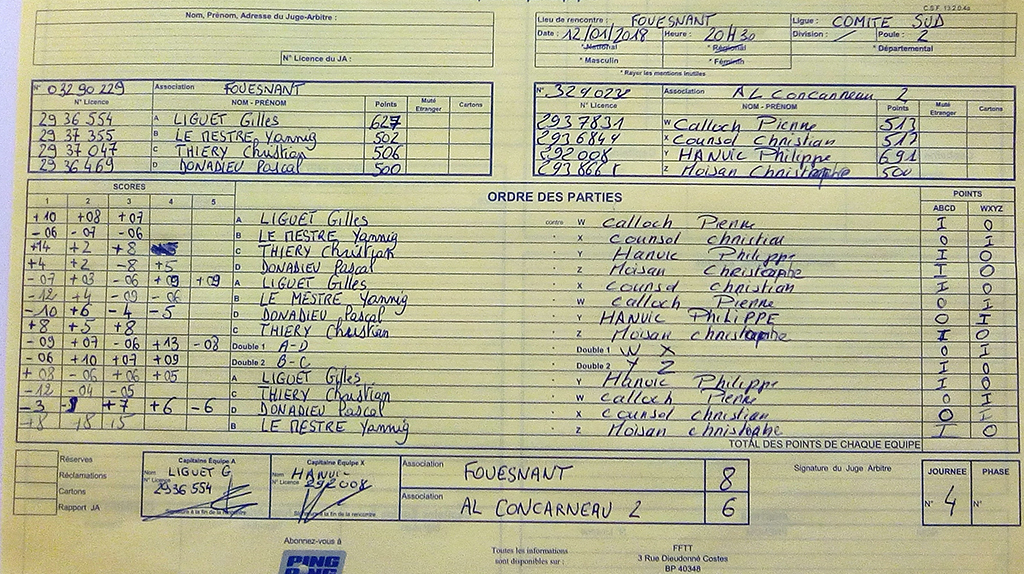 C.S.F. 13.2.0.4a
Nom, Prénom, Adresse du Juge-Arbitre :
N° Licence du JA :
Lieu de rencontre : FOUESNANT Ligue : COMITE SUD
Date : 12/01/2018 Heure : 20H30 Division : / Poule : 2
* National * Régional * Départemental
* Masculin * Féminin
* Rayer les mentions inutiles
N° 03290229 Association FOUESNANT
N° Licence NOM - PRÉNOM Points Muté Etranger Cartons
29 36 554 A LIGUET Gilles 627
29 37 355 B LE MESTRE Yannig 502
29 37 047 C THIERY Christian 506
29 36 469 D DONADIEU Pascal 500
N° Association AL Concarneau 2
N° Licence NOM - PRÉNOM Points Muté Etranger Cartons
2937831 W Calloch Pierre 513
2936844 X Counsol Christian 517
292008 Y HANVIC Philippe 691
Z Moisan Christophe 500
SCORES ORDRE DES PARTIES POINTS
1 2 3 4 5 ABCD WXYZ
+10 +08 +07 A LIGUET Gilles contre W Calloch Pierre I O
-06 -07 -06 B LE MESTRE Yannig X Counsol christian O I
+14 +2 +8 C THIERY Christian Y Hanvic Philippe I O
+4 +2 -8 +5 D DONADIEU Pascal Z Moisan Christophe I O
-07 +03 -06 +09 +09 A LIGUET Gilles X counsol christian I O
-12 +4 -09 -06 B LE MESTRE Yannig W Calloch Pierre O I
-10 +6 -4 -5 D DONADIEU Pascal Y HANVIC PhiLiPPE O I
+8 +5 +8 C THIERY Christian Z Moisan christophe I O
-09 +07 -06 +13 -08 Double 1 A-D Double 1 W X O I
-06 +10 +07 +09 Double 2 B-C Double 2 Y Z I O
+08 -06 +06 +05 A LIGUET Gilles Y Hanvic Philippe I O
-12 -04 -05 C THIERY Christian W Calloch Pierre O I
-3 +7 +6 -6 D DONADIEU Pascal X counsol christian O I
+8 +8 B LE MESTRE Yannig Z Moisan christophe I O
TOTAL DES POINTS DE CHAQUE EQUIPE
Réserves
Réclamations
Cartons
Rapport JA
Capitaine Équipe A
Nom LIGUET G
N° Licence 2936 554
Signature à la fin de la rencontre
Capitaine Équipe X
Nom HANVIC
N° Licence 292008
Signature à la fin de la rencontre
Association FOUESNANT 8
Association AL CONCARNEAU 2 6
Signature du Juge Arbitre
JOURNEE PHASE
N° 4 N°
Abonnez-vous à
PING
Toutes les informations
sont disponibles sur :
FFTT
3 Rue Dieudonné Costes
BP 40348